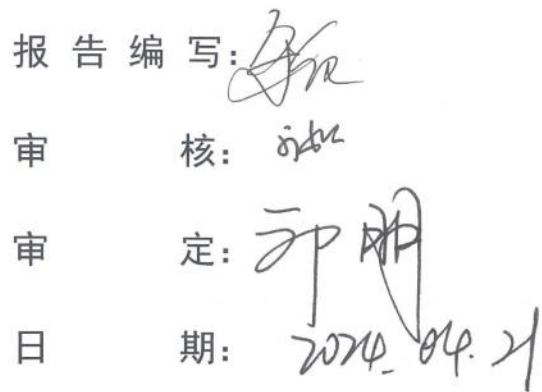 报告编写：
审核：
审定：邓明
日期：2024.04.21